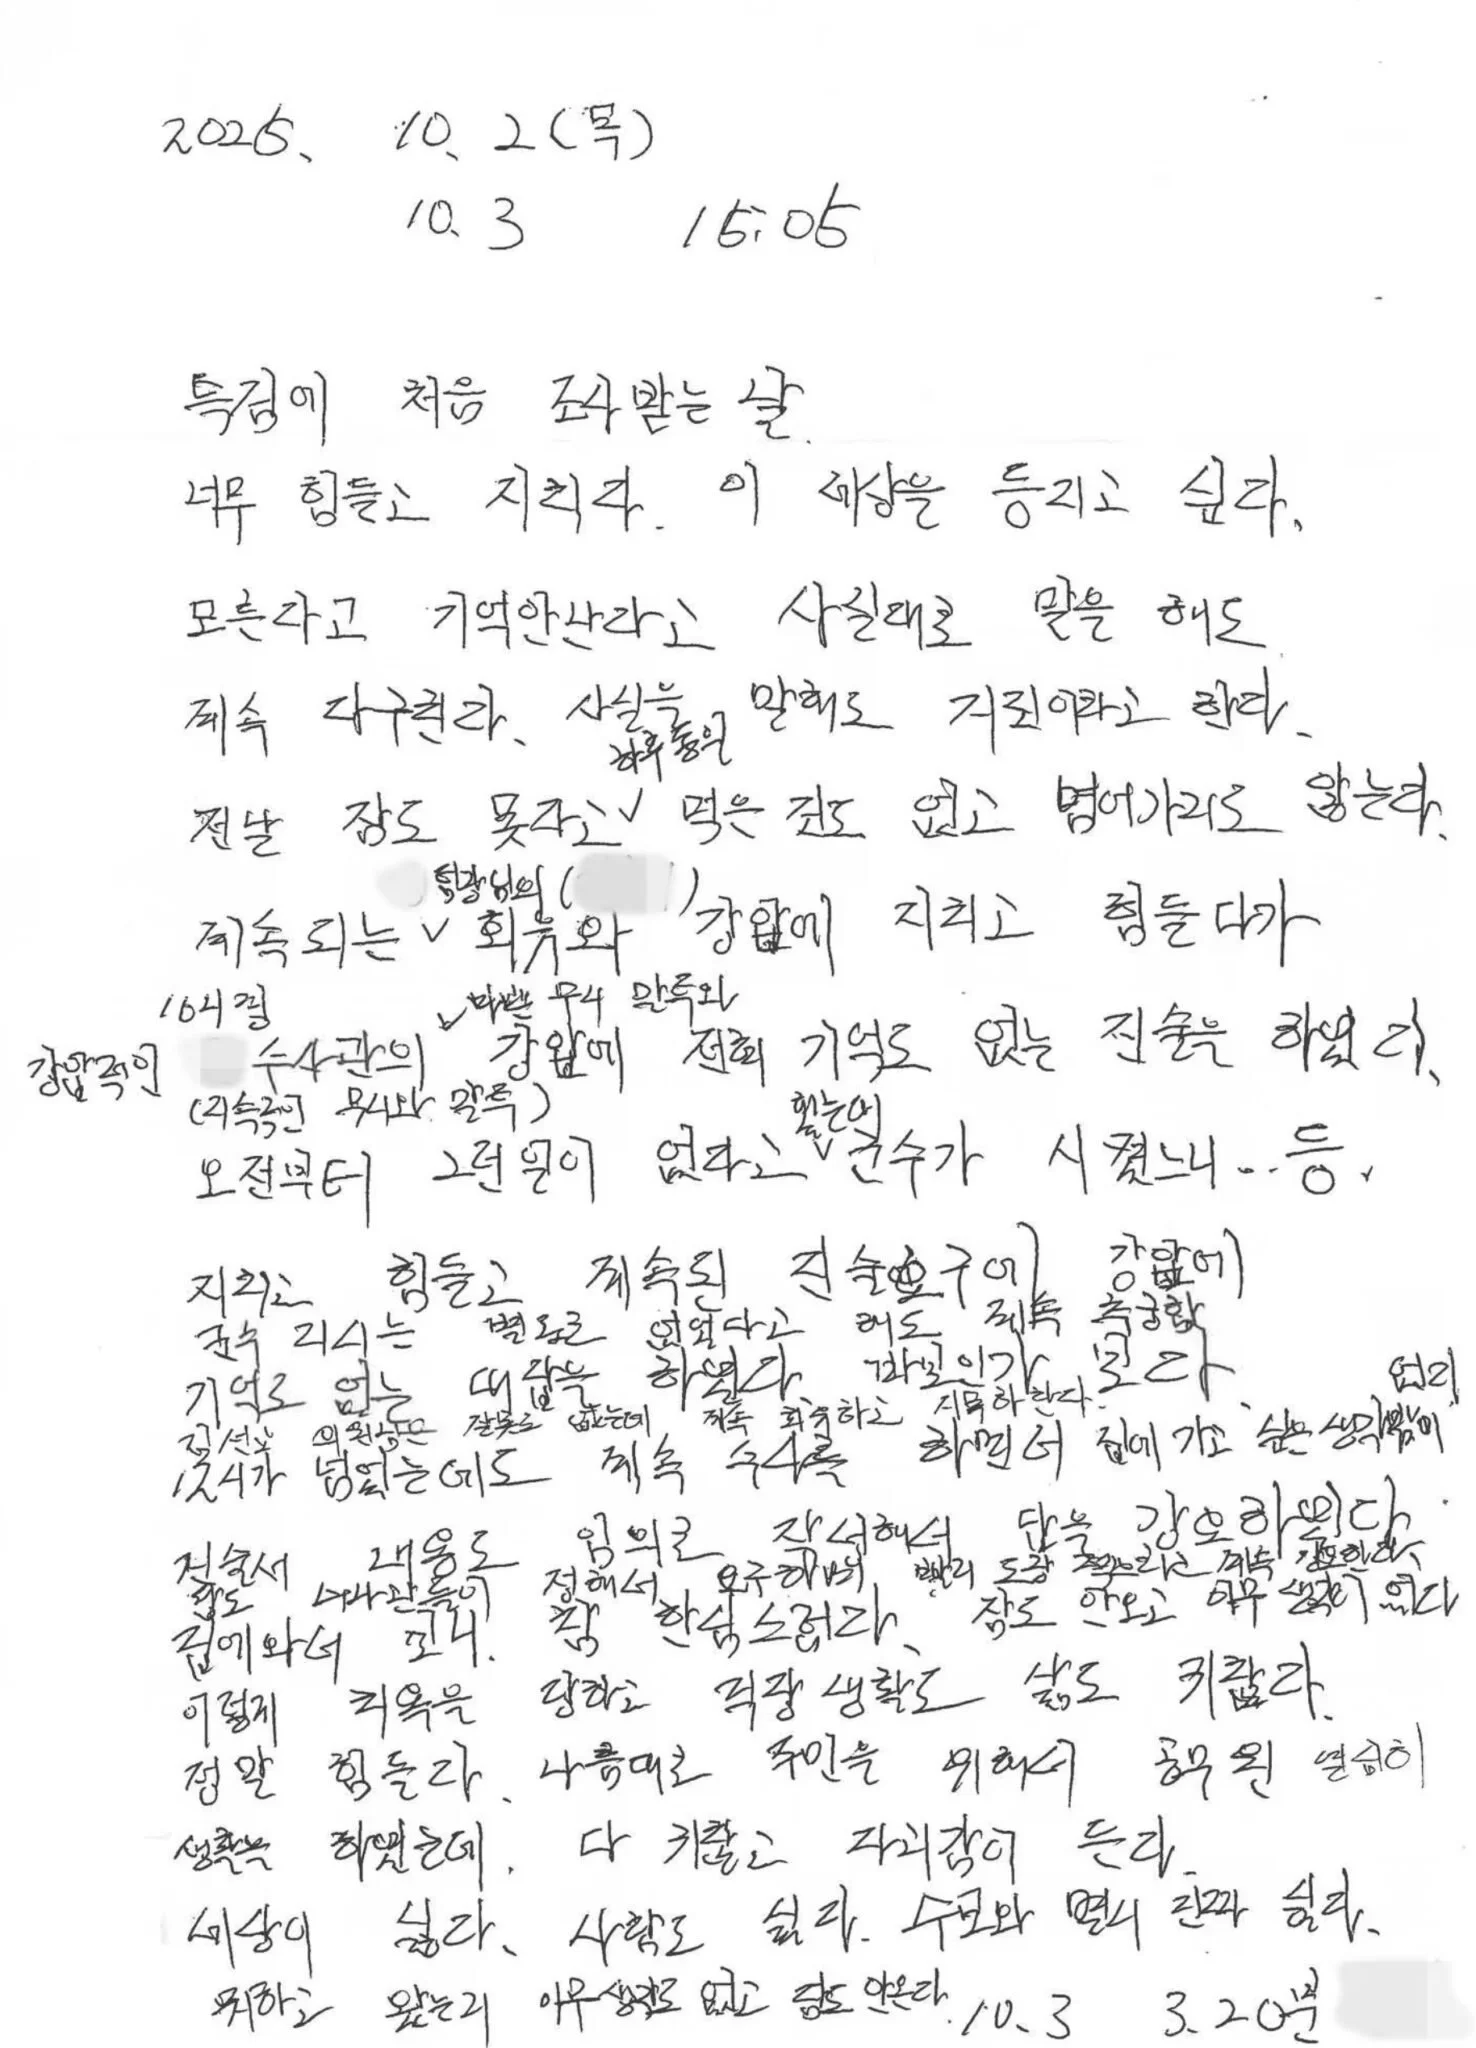 2025. 10. 2(목)
10. 3 15:05
특검에 처음 조사받는 날.
너무 힘들고 지치다. 이 세상을 등지고 싶다.
모른다고 기억안난다고 사실대로 말을 해도
계속 다구친다. 사실을 말해도 거짓이라고 한다.
하루종일
전날 잠도 못자고 ✓ 먹은 것도 없고 멍어가리로 않는다.
팀장님의 ( )
계속되는 ✓ 회유와 강압에 지치고 힘들다가
10시경 ✓ 마땅 무시 말투와
강압적인 수사관의 강압에 전혀 기억도 없는 진술을 하였다.
(지속적인 무시와 말투) 했는데
오전부터 그런일이 없다고 ✓ 군수가 시켰느니... 등.
지치고 힘들고 계속된 진술요구에 강압에
군수 지시는 별도로 없었다고 해도 계속 추궁함
기억도 없는 대답을 하였다. 바보인가 보다.
김선교 의원님은 잘못도 없는데 계속 회유하고 지목하란다. 없지
12시가 넘었는데도 계속 수사를 하면서 집에 가고 싶은 생각밖에
진술서 내용도 임의로 작성해서 답을 강요하였다.
답도 수사관들이 정해서 요구하며 빨리 도장 찍으라고 계속 강요한다.
집에와서 보니. 참 한심스럽다. 잠도 안오고 아무 생각이 없다
이렇게 치욕을 당하고 직장생활도 삶도 귀찮다.
정말 힘들다. 나름대로 주민을 위해서 공무원 열심히
생활을 하였는데. 다 귀찮고 자괴감이 든다.
세상이 싫다. 사람도 싫다. 수모와 멸시 진짜 싫다.
뭐하고 왔는지 아무생각도 없고 잠도 안온다. 10. 3 3. 20분